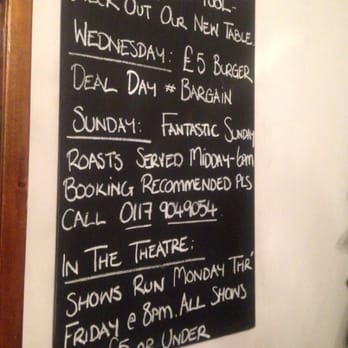 OUT OUR NEW TABLE
WEDNESDAY: £5 BURGER
DEAL DAY # BARGAIN
SUNDAY: FANTASTIC SUNDAY
ROASTS SERVED MIDDAY-6am
BOOKING RECOMMENDED PLS
CALL 0117 9049054
IN THE THEATRE:
SHOWS RUN MONDAY THR'
FRIDAY @ 8PM. ALL SHOWS
£5 OR UNDER